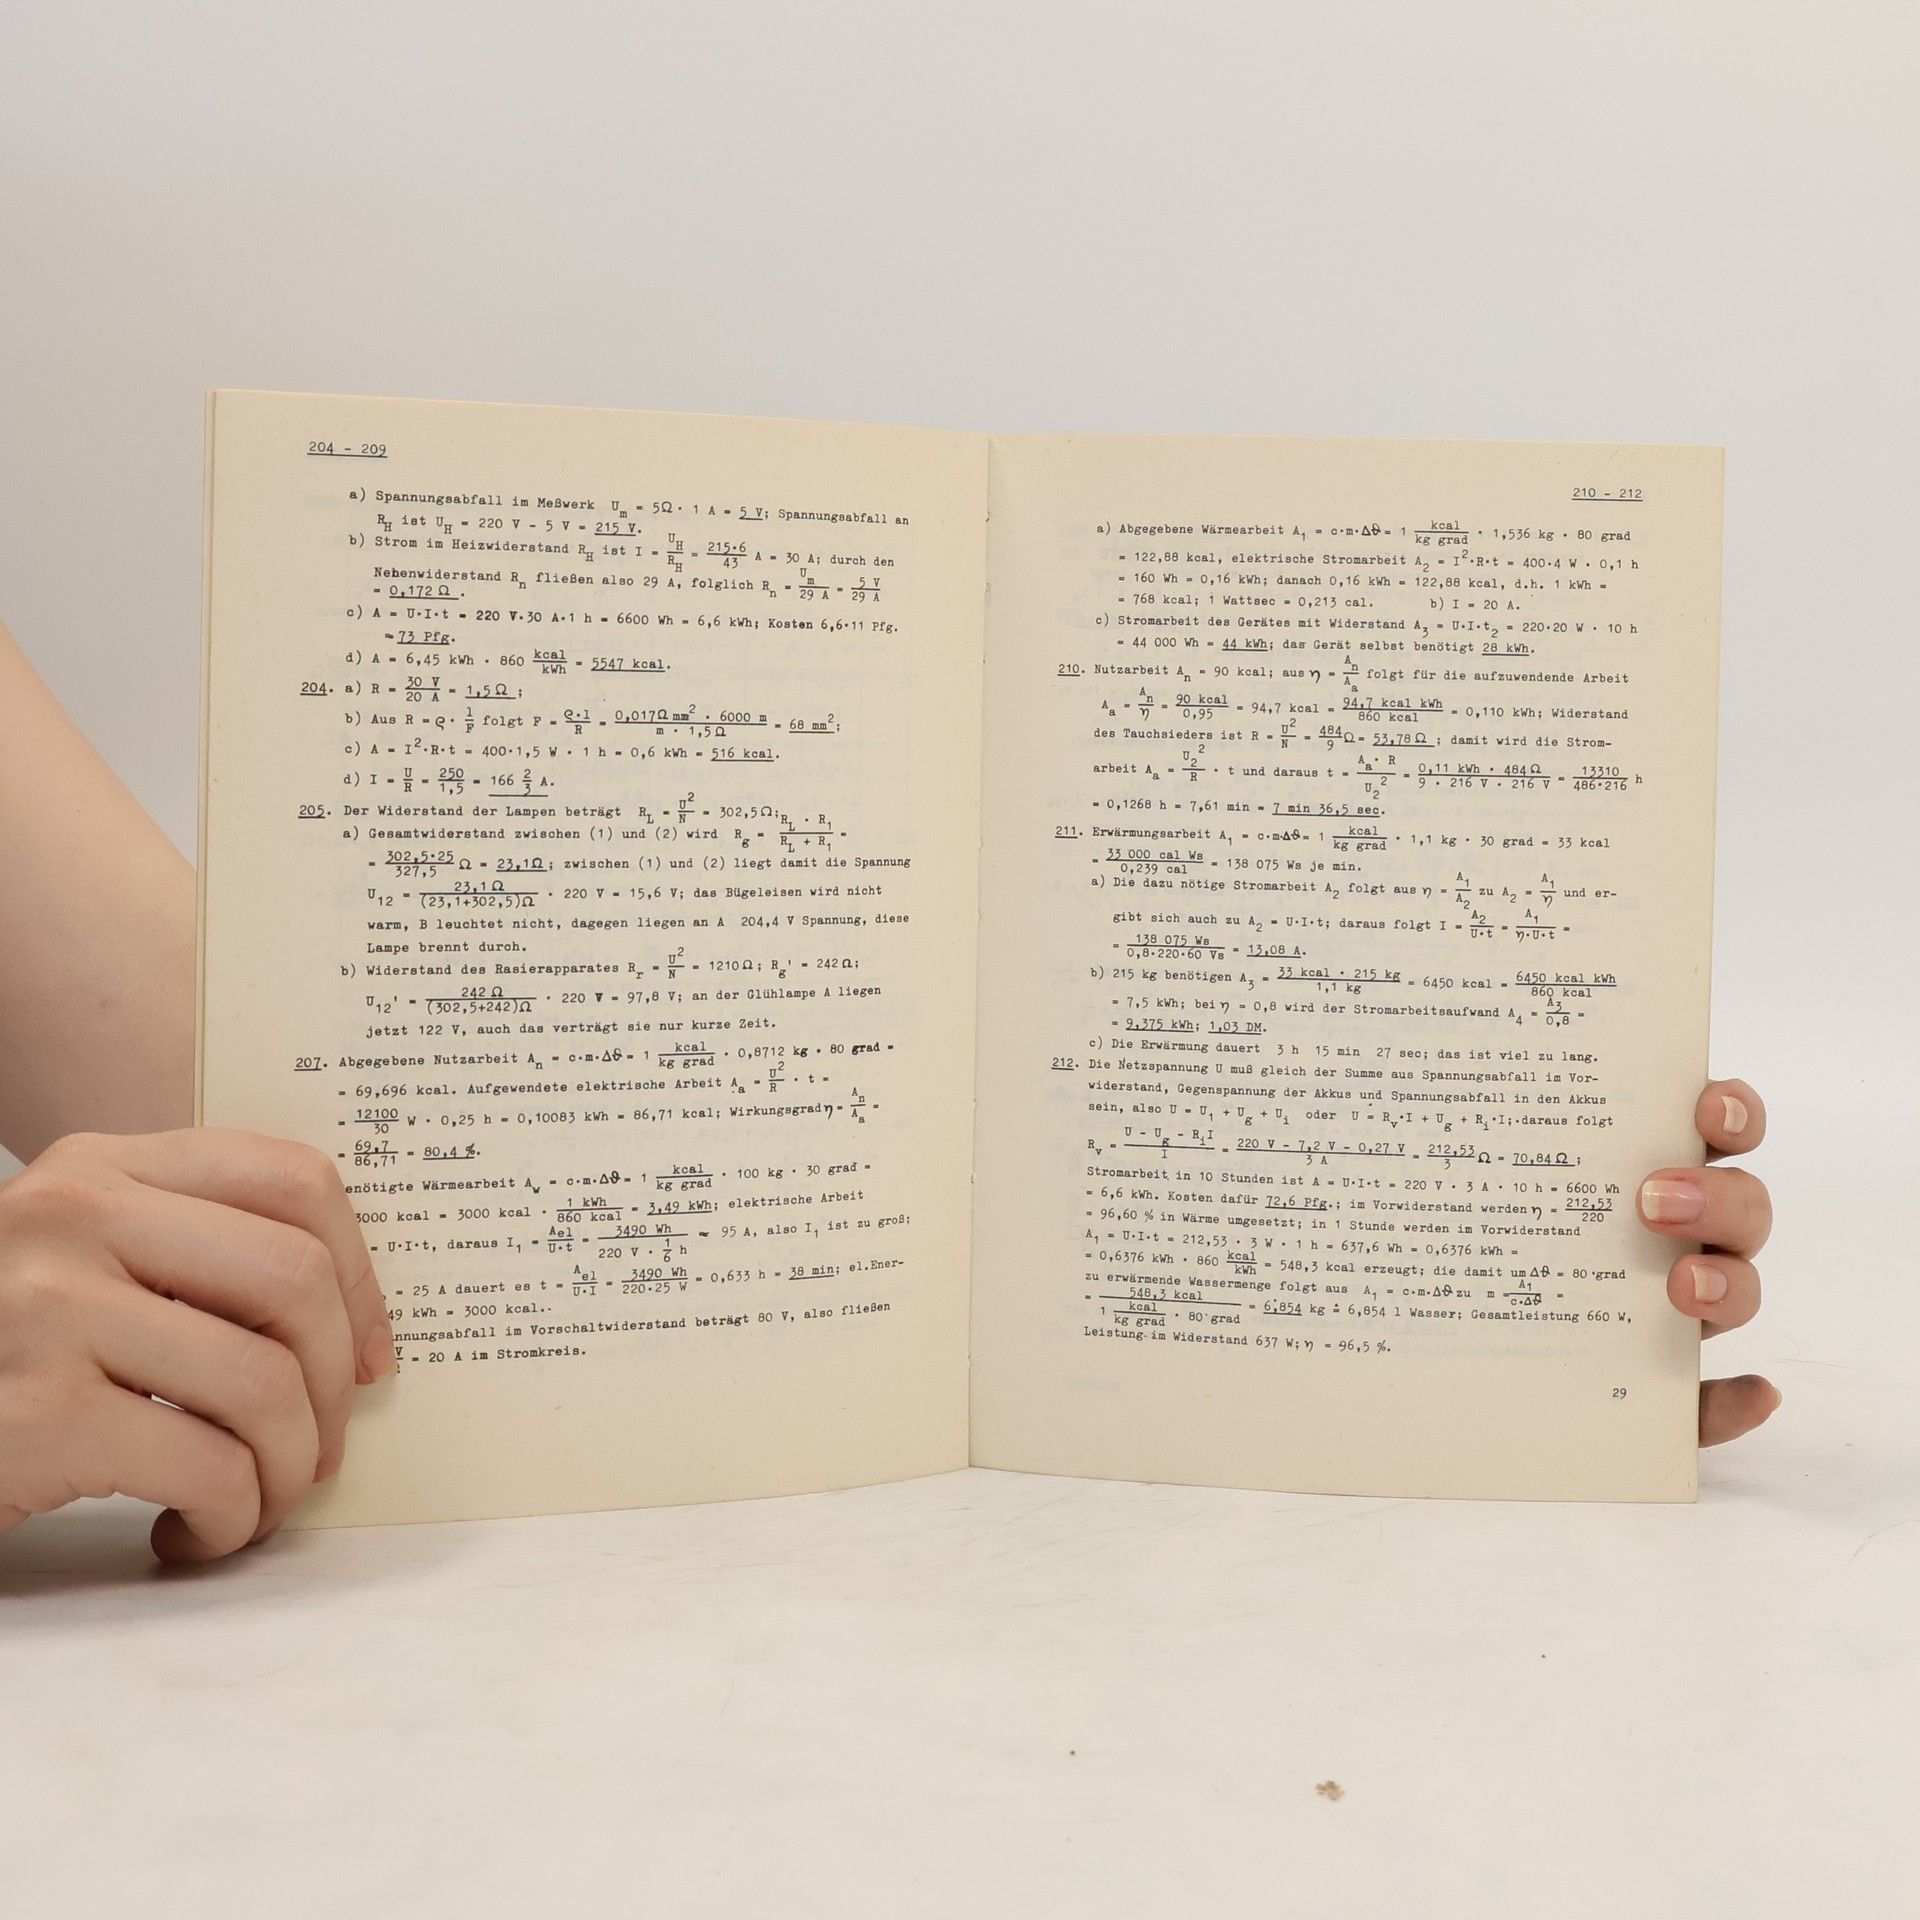 204 - 209
a) Spannungsabfall im Meßwerk U_m = 5Ω · 1 A = 5 V; Spannungsabfall an
R_H ist U_H = 220 V - 5 V = 215 V.
b) Strom im Heizwiderstand R_H ist I = U_H/R_H = 215·6/43 A = 30 A; durch den
Nebenwiderstand R_n fließen also 29 A, folglich R_n = U_m/29 A = 5 V/29 A
= 0,172 Ω.
c) A = U·I·t = 220 V·30 A·1 h = 6600 Wh = 6,6 kWh; Kosten 6,6·11 Pfg.
≈ 73 Pfg.
d) A = 6,45 kWh · 860 kcal/kWh = 5547 kcal.
204. a) R = 30 V/20 A = 1,5 Ω ;
b) Aus R = ϱ · l/F folgt F = ϱ·l/R = 0,017 Ω mm² · 6000 m/m · 1,5 Ω = 68 mm²;
c) A = I²·R·t = 400·1,5 W · 1 h = 0,6 kWh = 516 kcal.
d) I = U/R = 250/1,5 = 166 2/3 A.
205. Der Widerstand der Lampen beträgt R_L = U²/N = 302,5 Ω;
a) Gesamtwiderstand zwischen (1) und (2) wird R_g = R_L · R_1/R_L + R_1 =
= 302,5·25/327,5 Ω = 23,1Ω; zwischen (1) und (2) liegt damit die Spannung
U_12 = 23,1 Ω/(23,1+302,5)Ω · 220 V = 15,6 V; das Bügeleisen wird nicht
warm, B leuchtet nicht, dagegen liegen an A 204,4 V Spannung, diese
Lampe brennt durch.
b) Widerstand des Rasierapparates R_r = U²/N = 1210 Ω; R_g' = 242 Ω;
U_12' = 242 Ω/(302,5+242)Ω · 220 V = 97,8 V; an der Glühlampe A liegen
jetzt 122 V, auch das verträgt sie nur kurze Zeit.
207. Abgegebene Nutzarbeit A_n = c·m·Δϑ = 1 kcal/kg grad · 0,8712 kg · 80 grad =
= 69,696 kcal. Aufgewendete elektrische Arbeit A_a = U²/R · t =
= 12100/30 W · 0,25 h = 0,10083 kWh = 86,71 kcal; Wirkungsgrad η = A_n/A_a =
= 69,7/86,71 = 80,4 %.
enötigte Wärmearbeit A_w = c·m·Δϑ = 1 kcal/kg grad · 100 kg · 30 grad =
3000 kcal = 3000 kcal · 1 kWh/860 kcal = 3,49 kWh; elektrische Arbeit
= U·I·t, daraus I_1 = A_el/U·t = 3490 Wh/220 V · 1/6 h ≈ 95 A, also I_1 ist zu groß;
= 25 A dauert es t = A_el/U·I = 3490 Wh/220·25 W = 0,633 h = 38 min; el.Ener-
49 kWh = 3000 kcal..
nnungsabfall im Vorschaltwiderstand beträgt 80 V, also fließen
= 20 A im Stromkreis.
210 - 212
a) Abgegebene Wärmearbeit A_1 = c·m·Δϑ = 1 kcal/kg grad · 1,536 kg · 80 grad
= 122,88 kcal, elektrische Stromarbeit A_2 = I²·R·t = 400·4 W · 0,1 h
= 160 Wh = 0,16 kWh; danach 0,16 kWh = 122,88 kcal, d.h. 1 kWh =
= 768 kcal; 1 Wattsec = 0,213 cal. b) I = 20 A.
c) Stromarbeit des Gerätes mit Widerstand A_3 = U·I·t_2 = 220·20 W · 10 h
= 44 000 Wh = 44 kWh; das Gerät selbst benötigt 28 kWh.
210. Nutzarbeit A_n = 90 kcal; aus η = A_n/A_a folgt für die aufzuwendende Arbeit
A_a = A_n/η = 90 kcal/0,95 = 94,7 kcal = 94,7 kcal kWh/860 kcal = 0,110 kWh; Widerstand
des Tauchsieders ist R = U²/N = 484/9 Ω = 53,78 Ω ; damit wird die Strom-
arbeit A_a = U_2²/R · t und daraus t = A_a · R/U_2² = 0,11 kWh · 484 Ω/9 · 216 V · 216 V = 13310/486·216 h
= 0,1268 h = 7,61 min = 7 min 36,5 sec.
211. Erwärmungsarbeit A_1 = c·m·Δϑ = 1 kcal/kg grad · 1,1 kg · 30 grad = 33 kcal
= 33 000 cal Ws/0,239 cal = 138 075 Ws je min.
a) Die dazu nötige Stromarbeit A_2 folgt aus η = A_1/A_2 zu A_2 = A_1/η und er-
gibt sich auch zu A_2 = U·I·t; daraus folgt I = A_2/U·t = A_1/η·U·t =
= 138 075 Ws/0,8·220·60 Vs = 13,08 A.
b) 215 kg benötigen A_3 = 33 kcal · 215 kg/1,1 kg = 6450 kcal = 6450 kcal kWh/860 kcal
= 7,5 kWh; bei η = 0,8 wird der Stromarbeitsaufwand A_4 = A_3/0,8 =
= 9,375 kWh; 1,03 DM.
c) Die Erwärmung dauert 3 h 15 min 27 sec; das ist viel zu lang.
212. Die Netzspannung U muß gleich der Summe aus Spannungsabfall im Vor-
widerstand, Gegenspannung der Akkus und Spannungsabfall in den Akkus
sein, also U = U_1 + U_g + U_i oder U = R_v·I + U_g + R_i·I; daraus folgt
R_v = U - U_g - R_iI/I = 220 V - 7,2 V - 0,27 V/3 A = 212,53/3 Ω = 70,84 Ω ;
Stromarbeit in 10 Stunden ist A = U·I·t = 220 V · 3 A · 10 h = 6600 Wh
= 6,6 kWh. Kosten dafür 72,6 Pfg.; im Vorwiderstand werden η = 212,53/220
= 96,60 % in Wärme umgesetzt; in 1 Stunde werden im Vorwiderstand
A_1 = U·I·t = 212,53 · 3 W · 1 h = 637,6 Wh = 0,6376 kWh =
= 0,6376 kWh · 860 kcal/kWh = 548,3 kcal erzeugt; die damit um Δϑ = 80 grad
zu erwärmende Wassermenge folgt aus A_1 = c·m·Δϑ zu m = A_1/c·Δϑ =
= 548,3 kcal/1 kcal/kg grad · 80 grad = 6,854 kg ≙ 6,854 l Wasser; Gesamtleistung 660 W,
Leistung im Widerstand 637 W; η = 96,5 %.
29